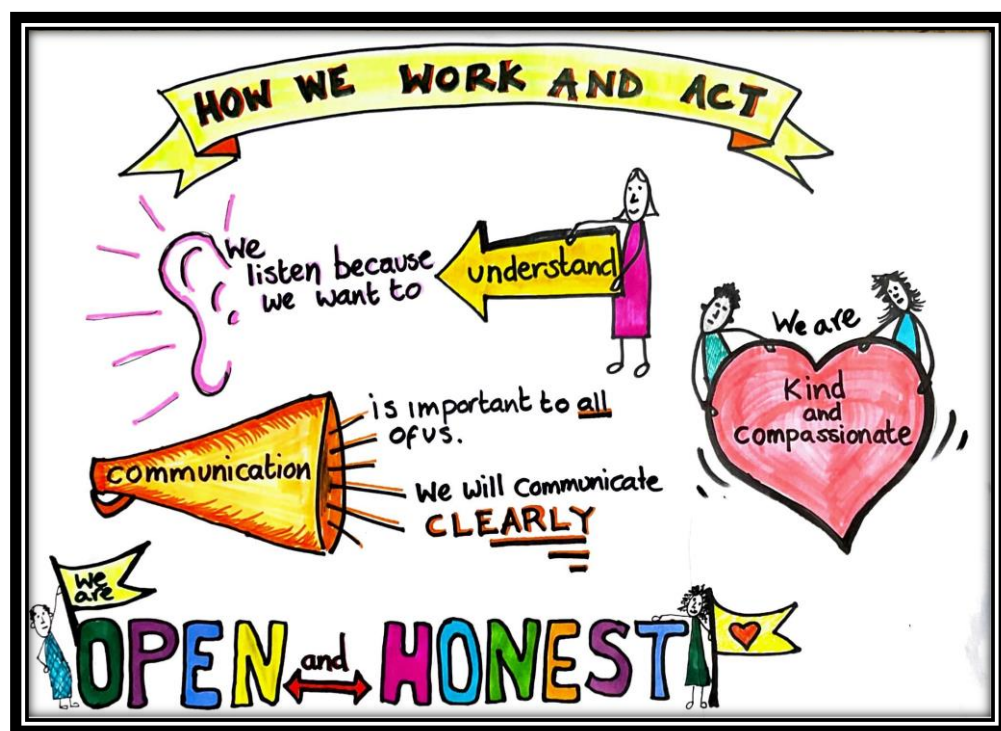 HOW WE WORK AND ACT
We
listen because
we want to
understand
We are
Kind
and
Compassionate
communication
is important to all
of us.
We will Communicate
CLEARLY
We
are
OPEN and HONEST